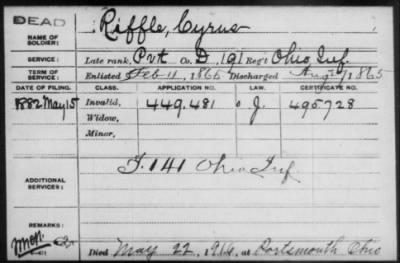 DEAD
NAME OF SOLDIER: Riffle, Cyrus
SERVICE: Late rank, Pvt Co. D, 191 Reg't Ohio Inf.
TERM OF SERVICE: Enlisted Feb 11, 1865 Discharged Aug 27 1865
DATE OF FILING. CLASS. APPLICATION NO. LAW. CERTIFICATE NO.
1882 May 15 Invalid, 449.481 J. 495728
Widow,
Minor,
ADDITIONAL SERVICES: F. 141 Ohio Inf.
REMARKS:
Died May 22, 1916, at Portsmouth Ohio